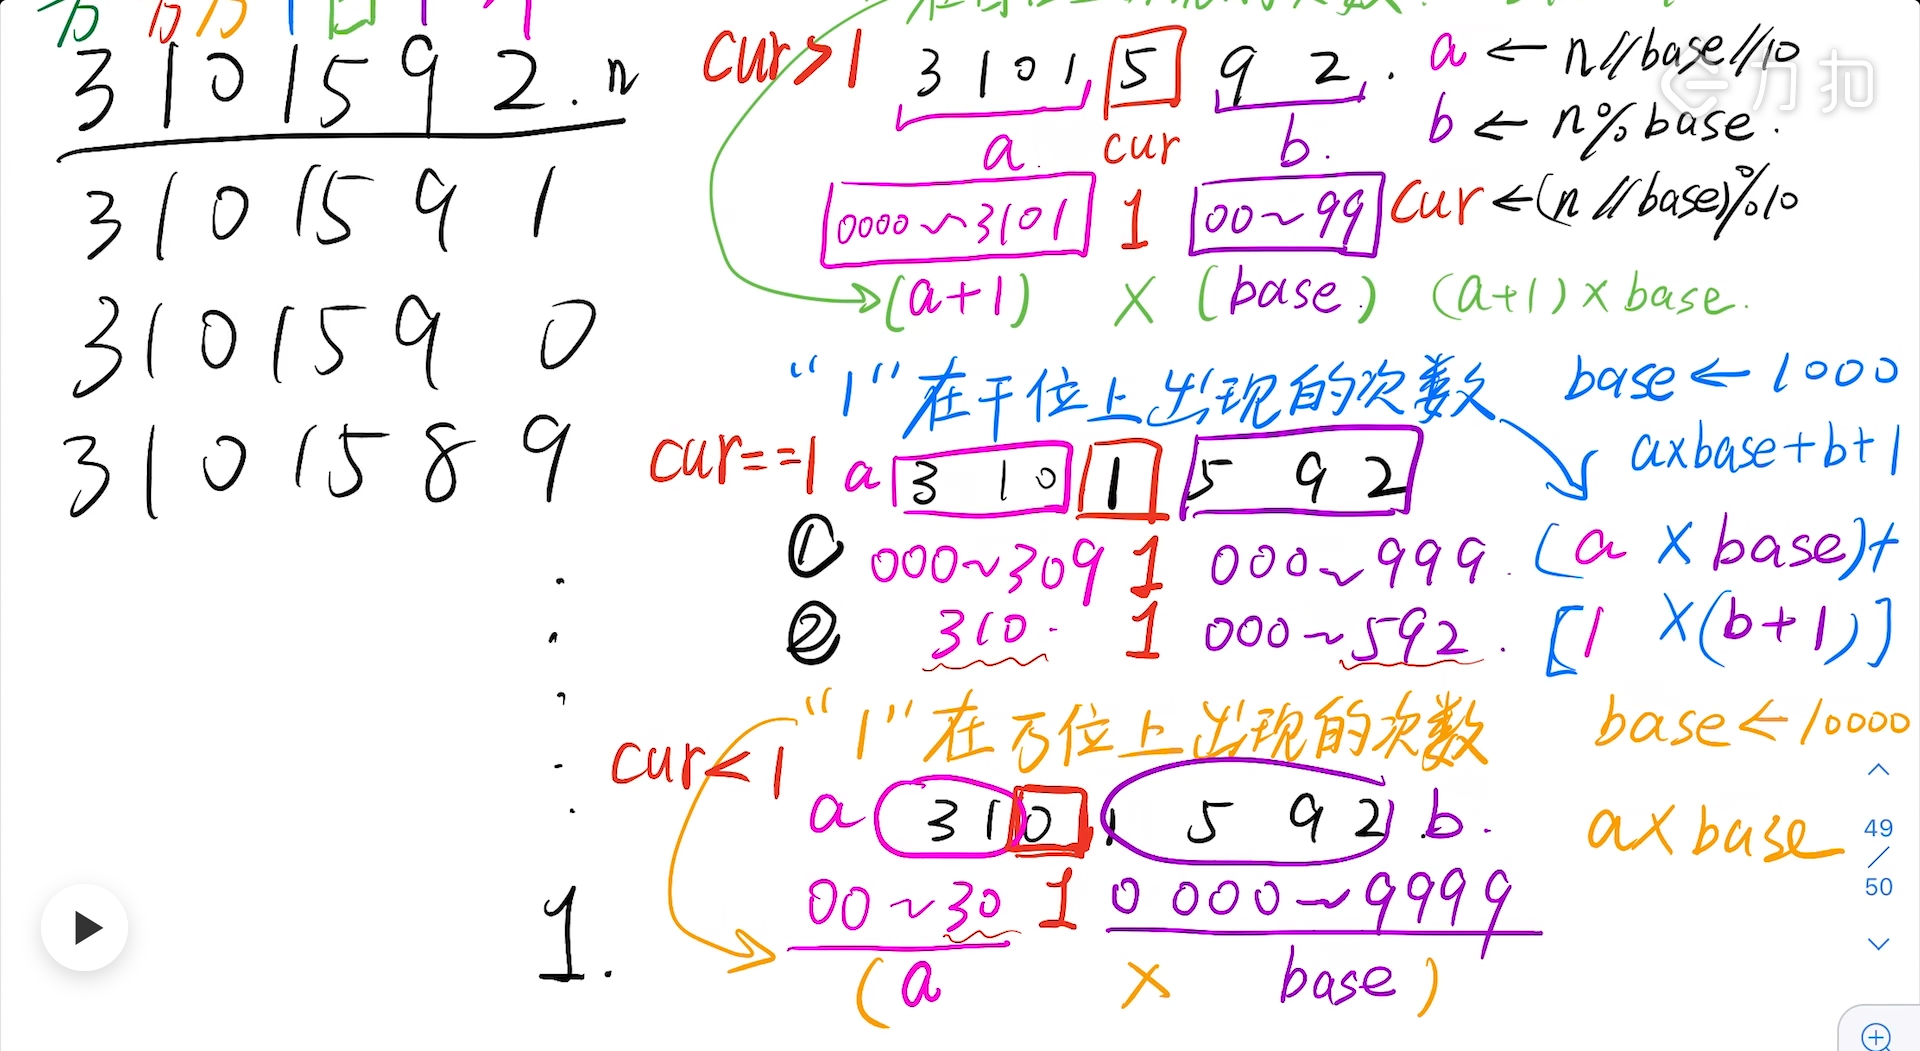 3101592.n
3101591
3101590
3101589
1.
cur>1
3101 5 92.
a cur b.
0000~3101 1 00~99
(a+1) × (base) (a+1)×base.
a ← n//base//10
力扣
b ← n%base.
cur ← (n//base)%10
"1"在千位上出现的次数
base ← 1000
a×base+b+1
cur==1 a 310 1 592
① 000~309 1 000~999. (a × base)+
② 310. 1 000~592. [1 ×(b+1)]
"1"在万位上出现的次数
base ← 10000
cur<1
a 31 0 1592 b.
a×base
00~30 1 0000~9999
(a × base)
49
/
50